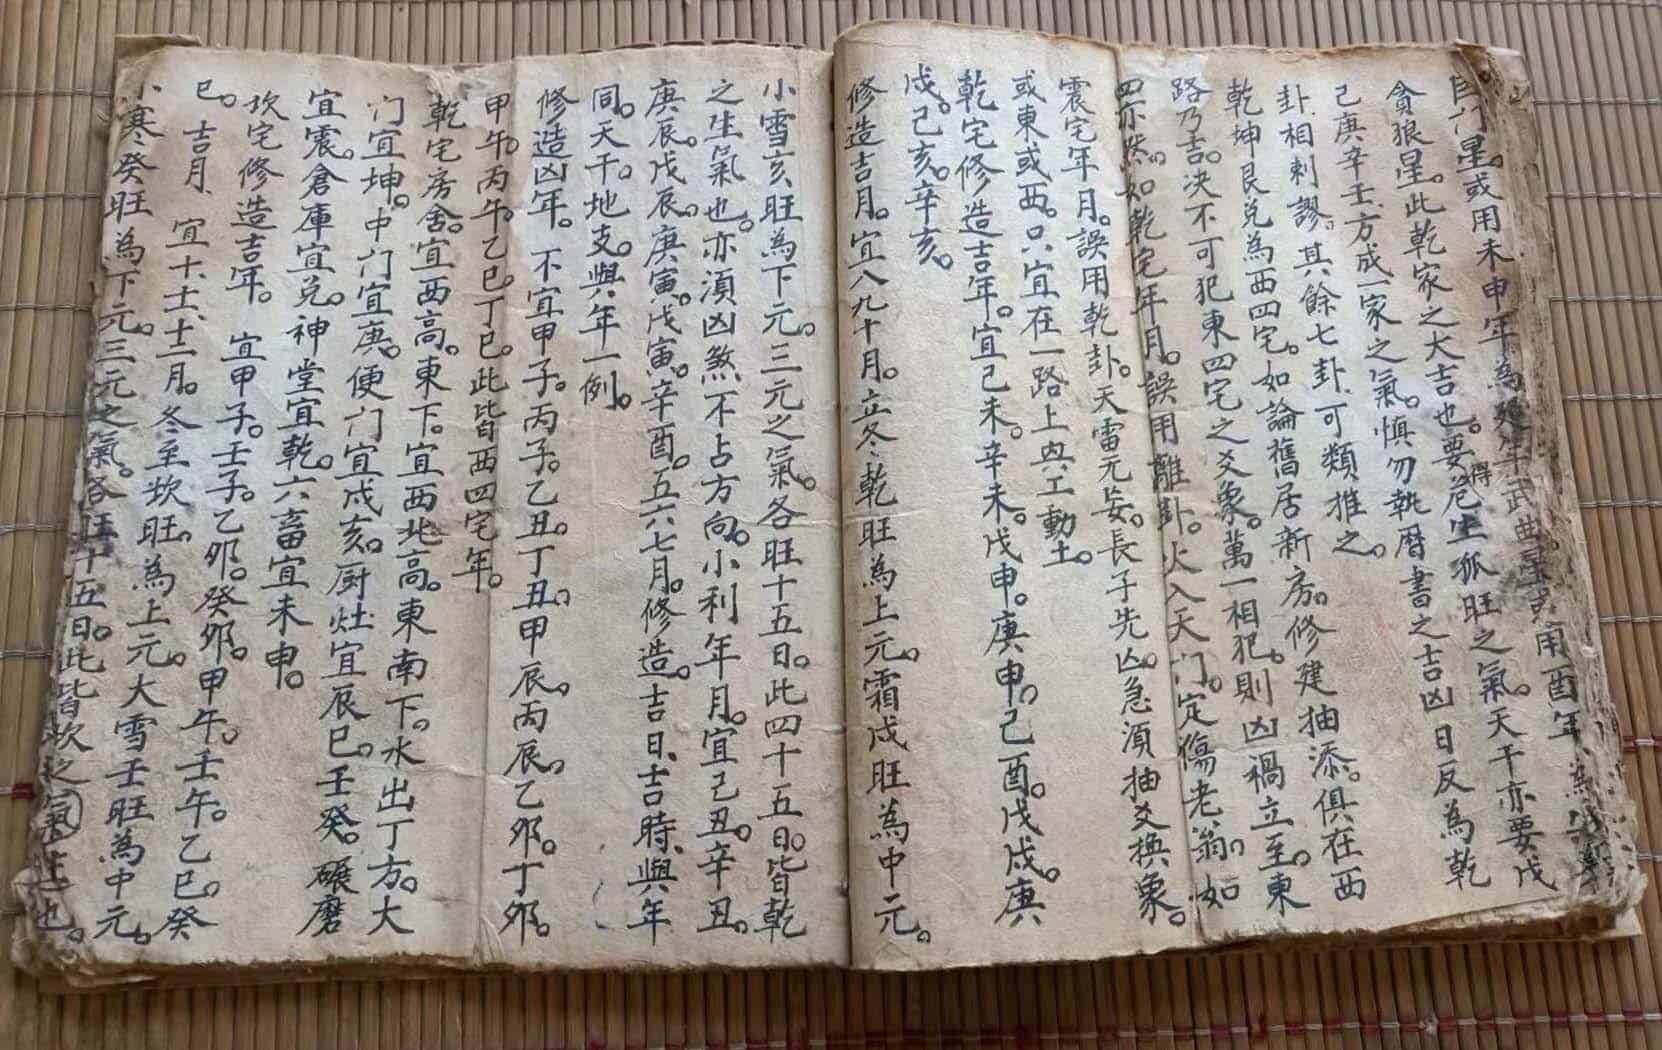 巨门星。或用未申年為延年武曲星。或用酉年為
貪狼星。此乾家之大吉也。要得苍生狐旺之氣。天干亦要戊
己庚辛壬、方成一家之氣。慎勿執曆書之吉凶日反為乾
卦相剌謬。其餘七卦、可類推之。
乾坤艮兑為西四宅。如論舊居新房。修建抽添。俱在西
路乃吉。决不可犯東四宅之爻象。萬一相犯。則凶禍立至。東
四亦然。如乾宅年月。誤用離卦。火入天门。定傷老翁。如
震宅年月。誤用乾卦。天雷元妄。長子先凶。急須抽爻换象。
或東或西。只宜在一路上兴工動土。
乾宅修造吉年。宜己未。辛未。戊申。庚申。己酉。戊戌。庚
戌。己亥。辛亥。
修造吉月。宜八九十月。立冬乾旺為上元。霜戌旺為中元。
小雪亥旺為下元。三元之氣。各旺十五日。此四十五日。皆乾
之生氣也。亦須凶煞不占方向。小利年月。宜己丑。辛丑。
庚辰。戊辰。庚寅。戊寅。辛酉。五六七月。修造。吉日、吉時、與年
同。天干。地支。與年一例。
修造凶年。不宜甲子。丙子。乙丑。丁丑。甲辰。丙辰。乙夘。丁夘。
甲午。丙午。乙巳。丁巳。此皆西四宅年。
乾宅房舍。宜西高。東下。宜西北高。東南下。水出丁方。大
门宜坤。中门宜庚。便门宜戌亥。厨灶宜辰巳。壬癸。碾磨
宜震。倉庫宜兑。神堂宜乾。六畜宜未申。
坎宅修造吉年。宜甲子。壬子。乙夘。癸夘。甲午。壬午。乙巳。癸
巳。吉月、宜十、十一、十二月。冬至坎旺。為上元。大雪壬旺為中元。
小寒癸旺為下元。三元之氣。各旺十五日。此皆坎之氣旺也。